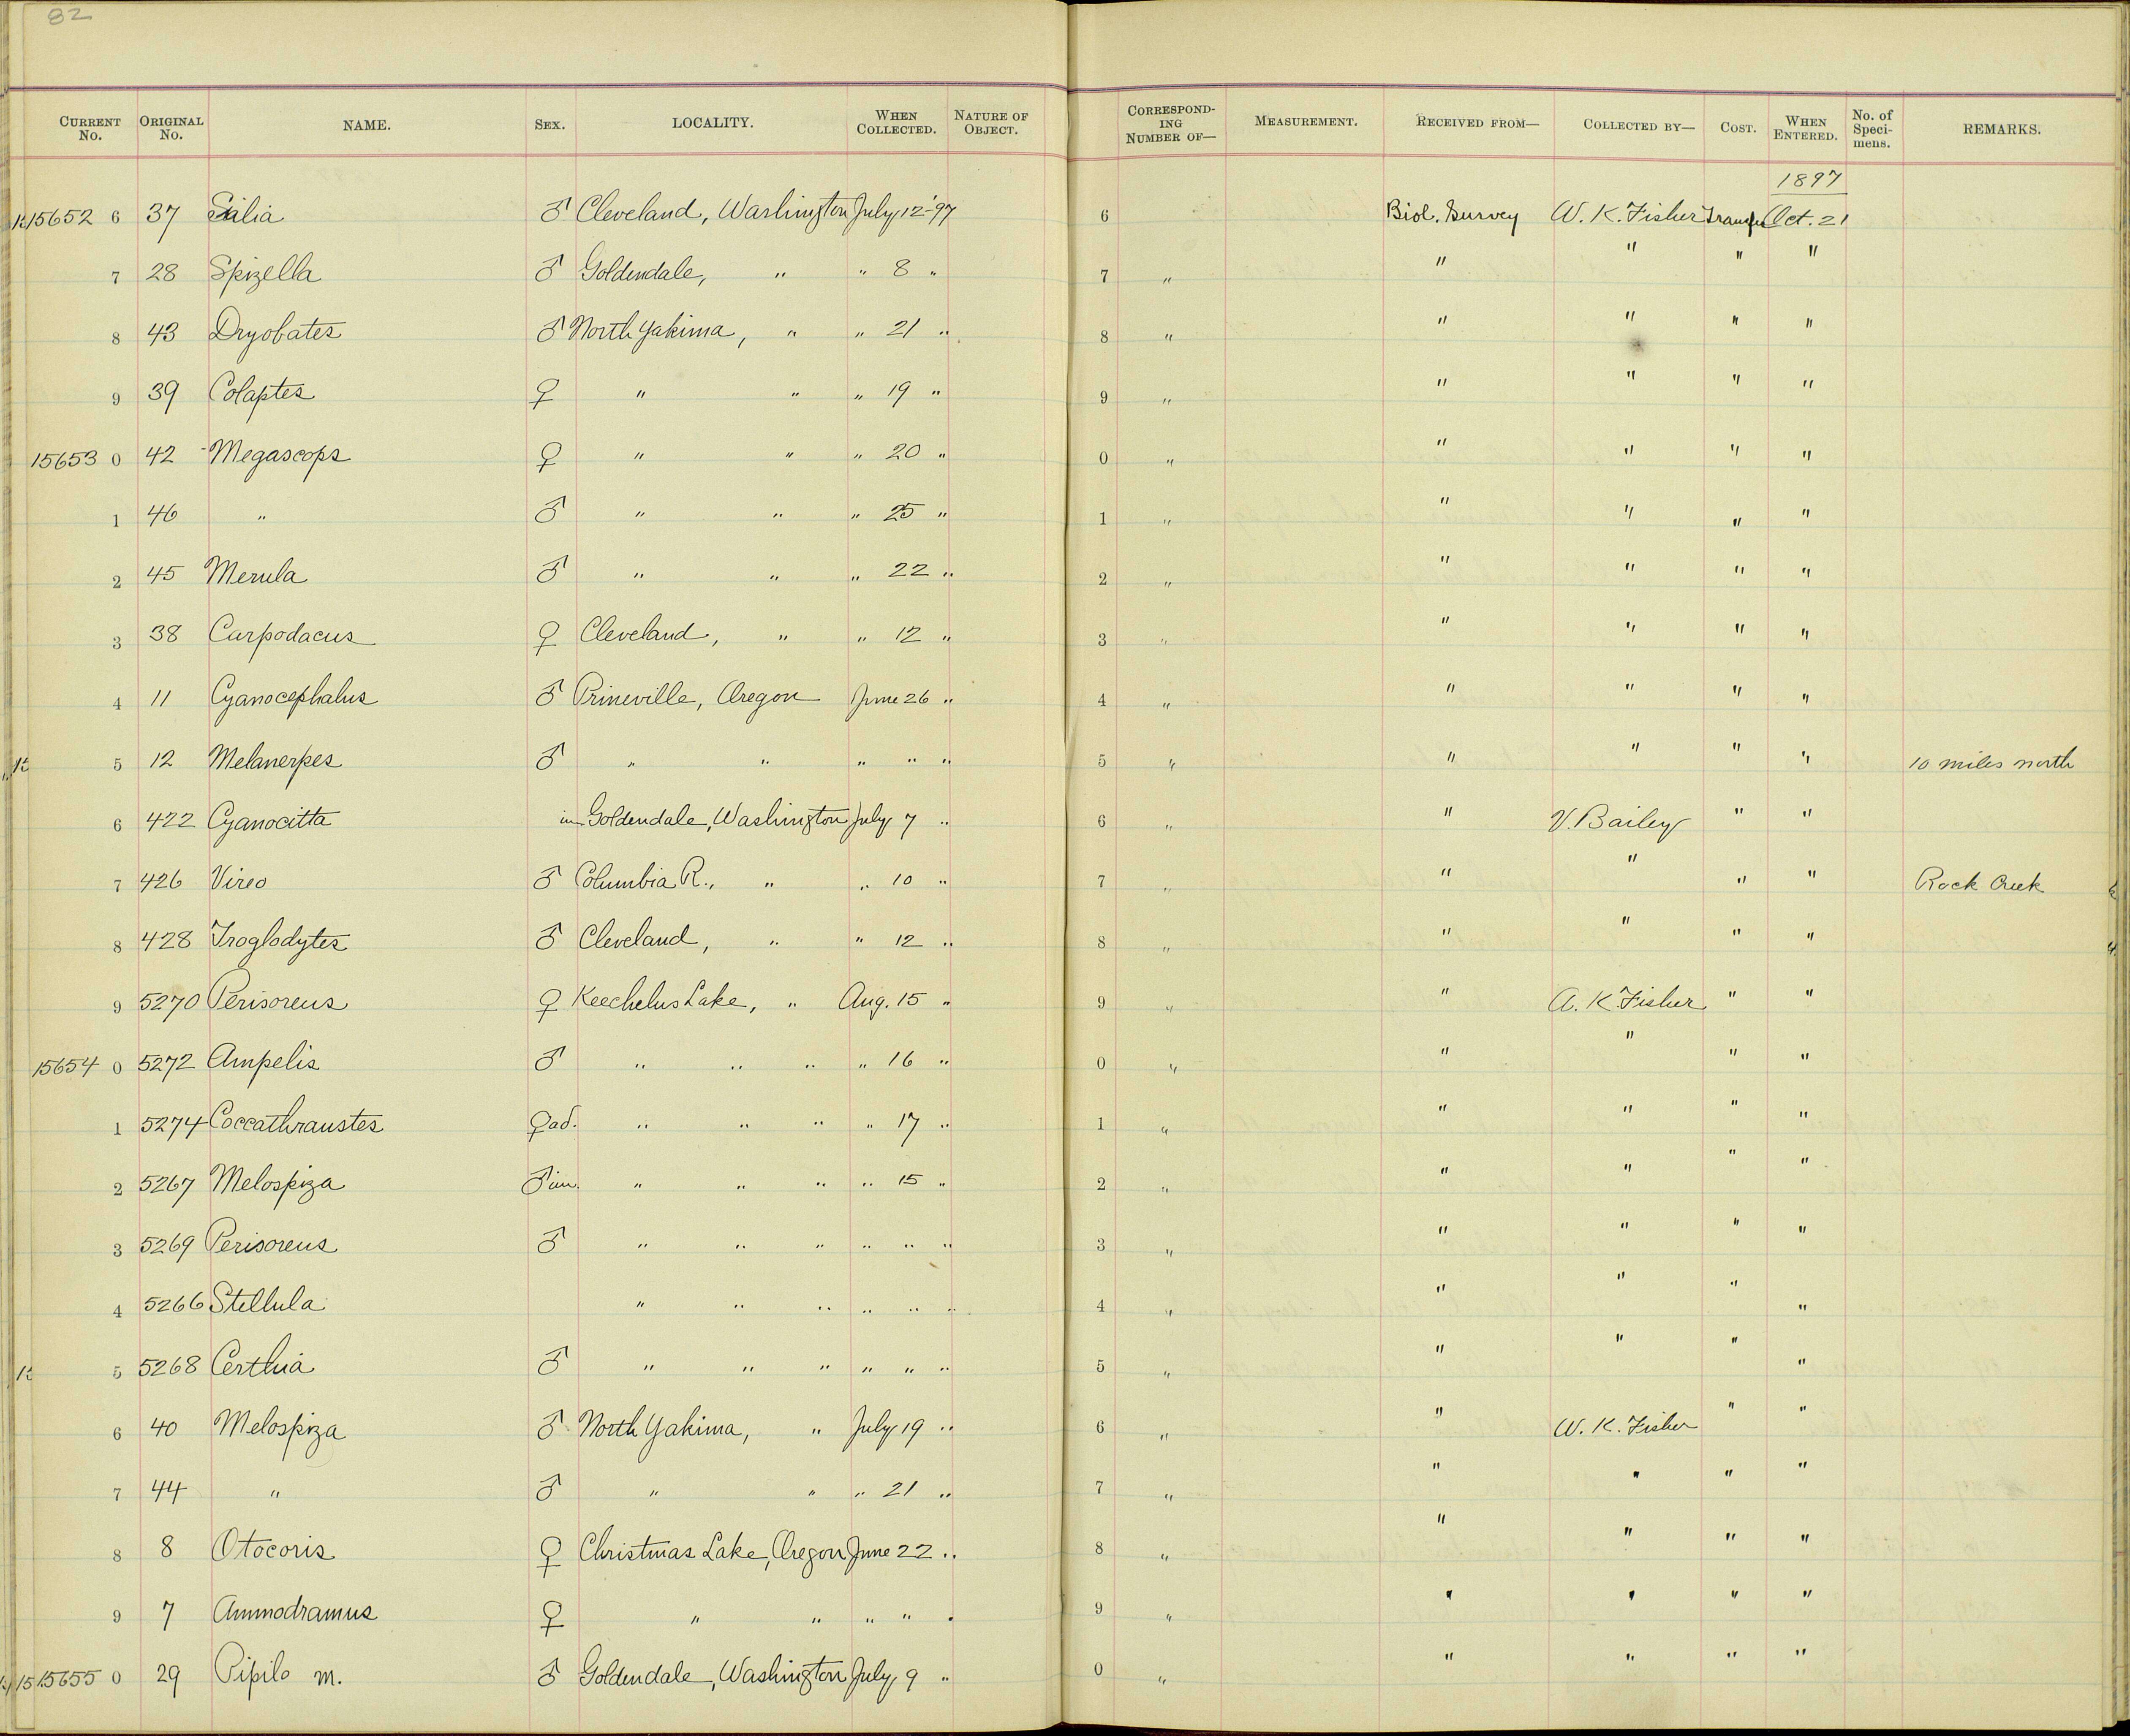 82
CURRENT No. ORIGINAL No. NAME. SEX. LOCALITY. WHEN COLLECTED. NATURE OF OBJECT. CORRESPONDING NUMBER OF— MEASUREMENT. RECEIVED FROM— COLLECTED BY— COST. WHEN ENTERED. No. of Specimens. REMARKS.
1897
15652 6 37 Sialia ♂ Cleveland, Washington July 12 '97 6 Biol. Survey W. K. Fisher Transfer Oct. 21
7 28 Spizella ♂ Goldendale, " " 8 " 7 " " " " "
8 43 Dryobates ♂ North Yakima, " " 21 " 8 " " " " "
9 39 Colaptes ♀ " " " 19 " 9 " " " " "
15653 0 42 Megascops ♀ " " " 20 " 0 " " " " "
1 46 " ♂ " " " 25 " 1 " " " " "
2 45 Merula ♂ " " " 22 " 2 " " " " "
3 38 Carpodacus ♀ Cleveland, " " 12 " 3 " " " " "
4 11 Cyanocephalus ♂ Prineville, Oregon June 26 " 4 " " " " "
5 12 Melanerpes ♂ " " " " " 5 " " " " " 10 miles north
6 422 Cyanocitta im Goldendale, Washington July 7 " 6 " " V. Bailey " "
7 426 Vireo ♂ Columbia R., " " 10 " 7 " " " " " Rock Creek
8 428 Troglodytes ♂ Cleveland, " " 12 " 8 " " " " "
9 5270 Perisoreus ♀ Keechelus Lake, " Aug. 15 " 9 " " A. K. Fisher " "
15654 0 5272 Ampelis ♂ " " " " 16 " 0 " " " " "
1 5274 Coccathraustes ♀ ad. " " " " 17 " 1 " " " " "
2 5267 Melospiza ♂ im. " " " " 15 " 2 " " " " "
3 5269 Perisoreus ♂ " " " " " " 3 " " " " "
4 5266 Stellula " " " " " " 4 " " " " "
5 5268 Certhia ♂ " " " " " " 5 " " " " "
6 40 Melospiza ♂ North Yakima, " July 19 " 6 " " W. K. Fisher " "
7 44 " ♂ " " " 21 " 7 " " " " "
8 8 Otocoris ♀ Christmas Lake, Oregon June 22 " 8 " " " " "
9 7 Ammodramus ♀ " " " " " 9 " " " " "
15655 0 29 Pipilo m. ♂ Goldendale, Washington July 9 " 0 " " " " "